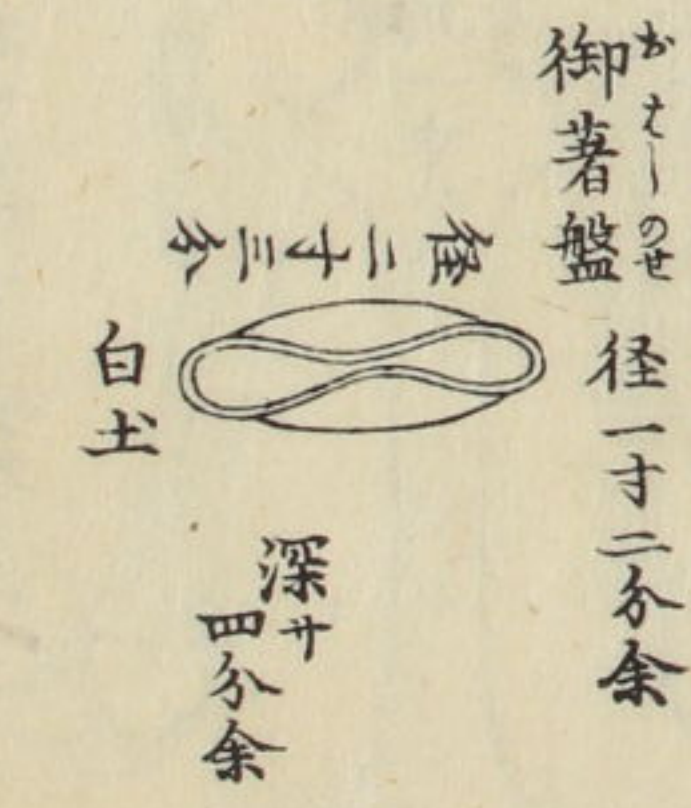 御著盤
おはしのせ
径一寸二分余
径二寸三分
白土
深サ
四分余